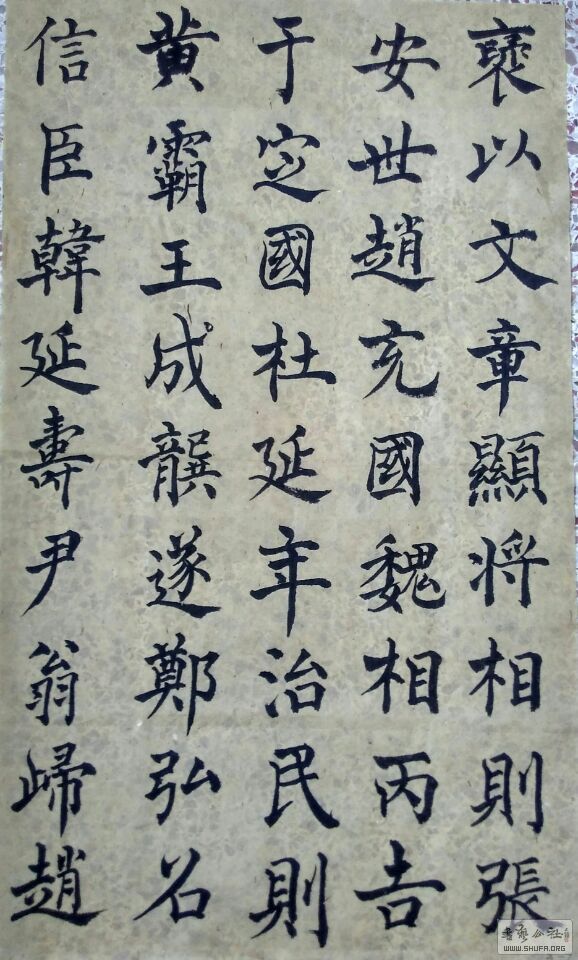 襃以文章顯将相則張
安世趙充國魏相丙吉
于定國杜延年治民則
黄霸王成龔遂鄭弘召
信臣韓延壽尹翁歸趙
書藝公社
WWW.SHUFA.ORG